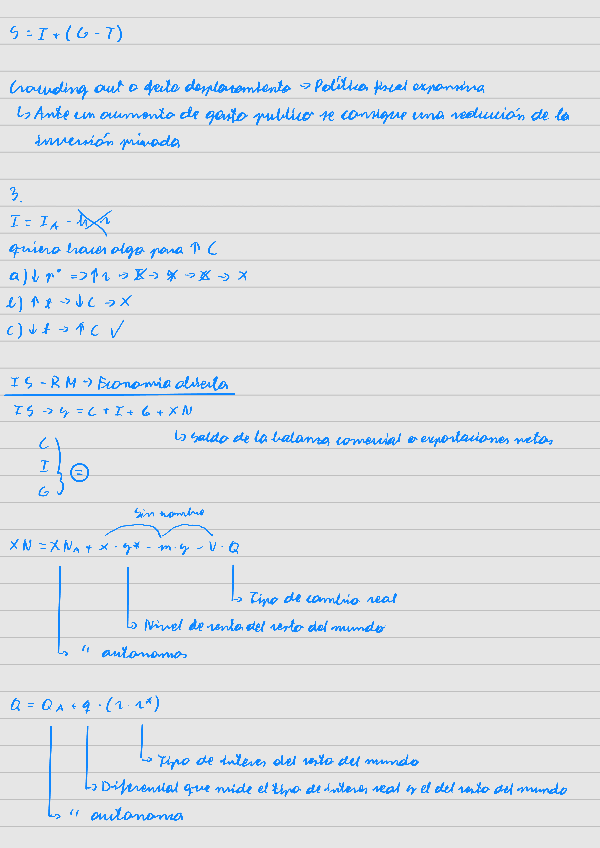 S = I + (G - T)
Crowding out o efecto desplazamiento → Política fiscal expansiva
↳ Ante un aumento de gasto publico se consigue una reducción de la
inversión privada
3.
I = I_A -
quiero hacer algo para ↑ C
a) ↓ r* => ↑ r → X → X → X → X
b) ↑ t → ↓ C → X
c) ↓ t → ↑ C ✓
IS - RM → Economía abierta
IS → y = C + I + G + XN
↳ Saldo de la balanza comercial o exportaciones netas
C
I
G
=
Sin nombre
XN = XN_A + x · y* - m · y - v · Q
↳ Tipo de cambio real
↳ Nivel de renta del resto del mundo
↳ " autonomas
Q = Q_A + q · (r · r*)
↳ Tipo de interes del resto del mundo
↳ Diferencial que mide el tipo de interes real y el del resto del mundo
↳ " autonoma